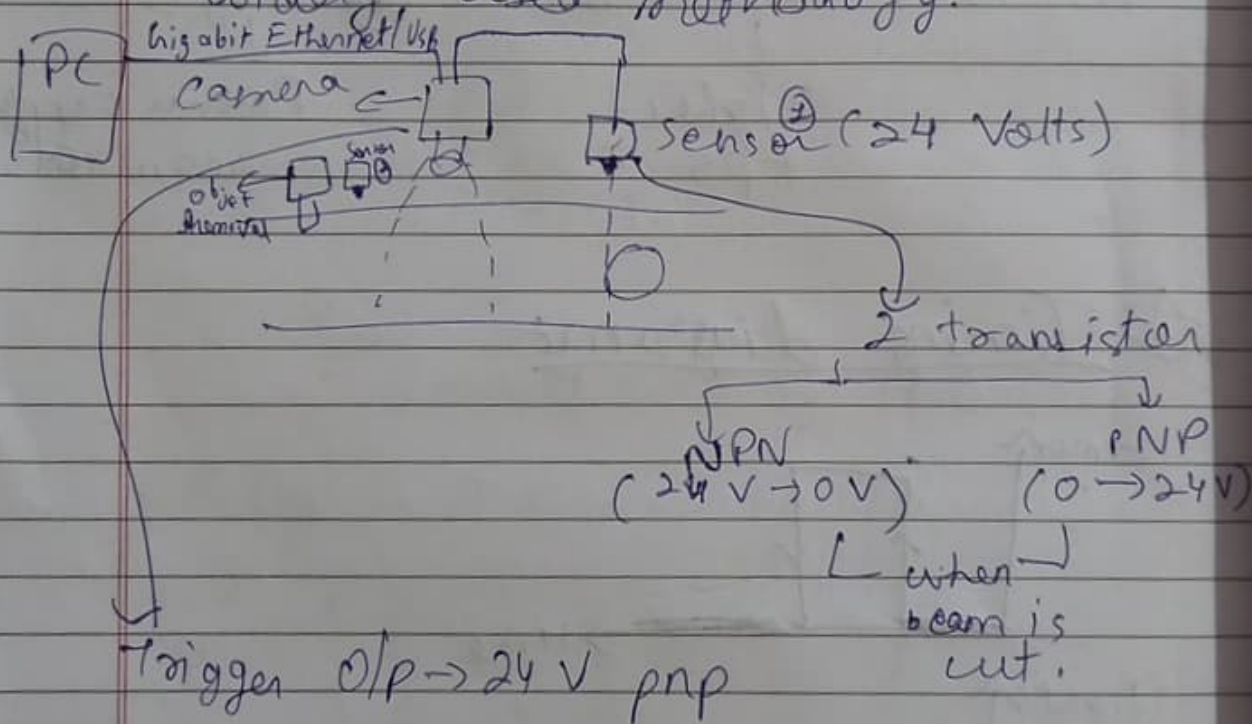 Gigabit Ethernet/Usb
PC
Camera
Sensor ① (24 Volts)
Sensor ②
Object
Removal
2 transistor
NPN
(24 V → 0 V)
PNP
(0 → 24V)
when
beam is
cut.
Trigger O/P → 24 V pnp